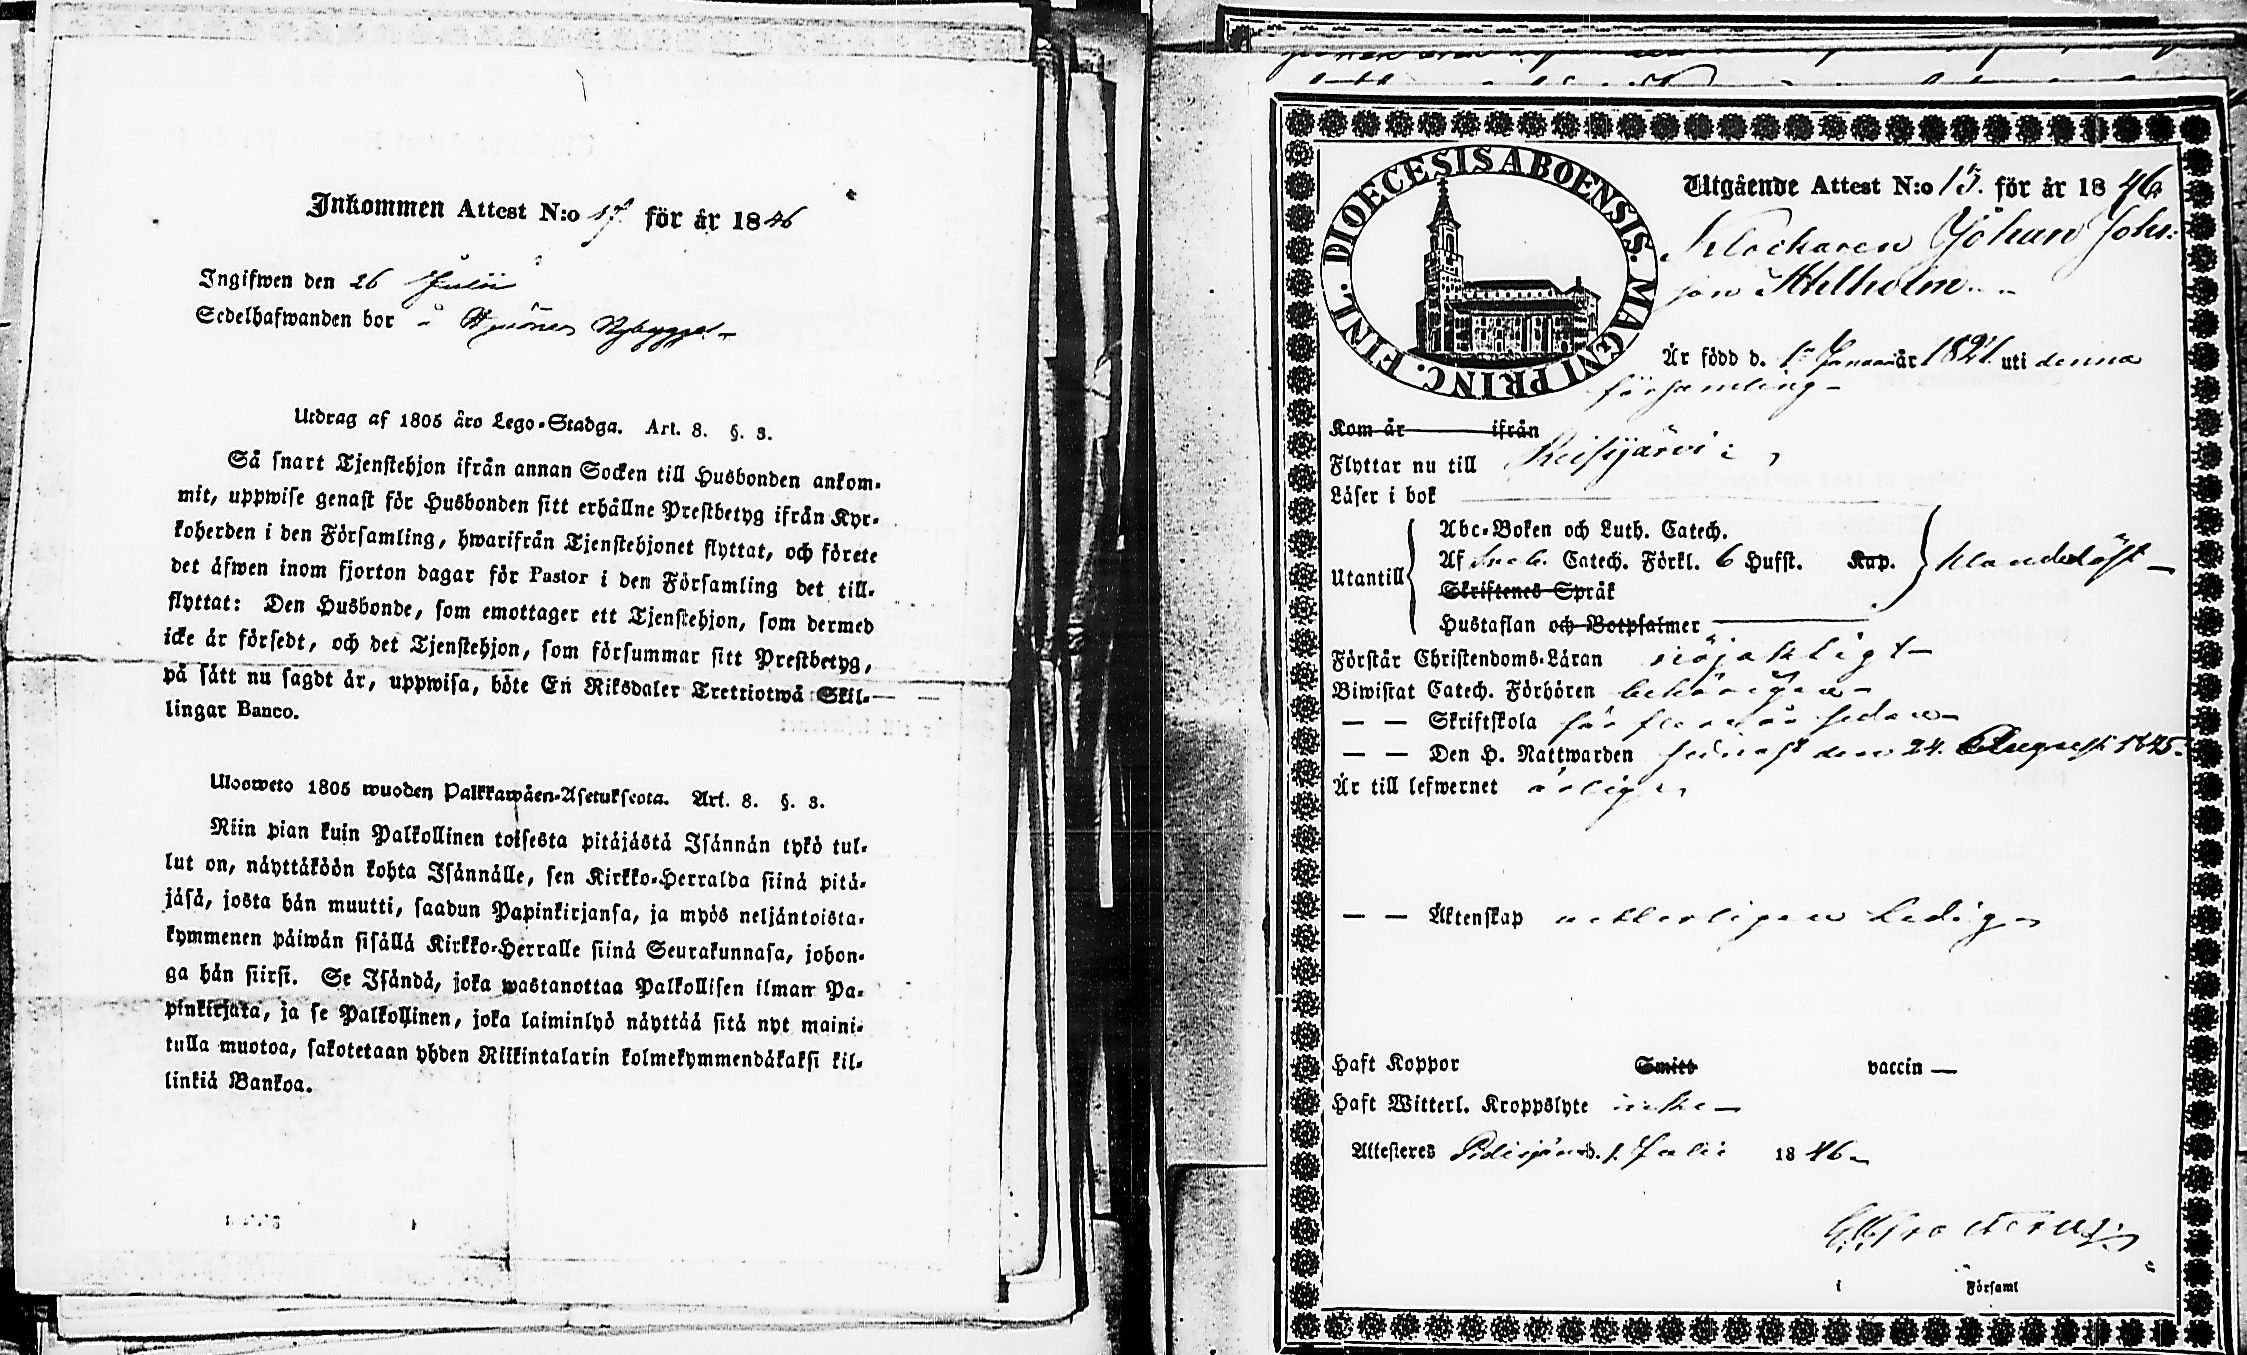 Inkommen Attest N:o 17 för år 1846
Ingifwen den 26 Julii
Sedelhafwanden bor å
Utdrag af 1805 åro Lego-Stadga. Art. 8. §. 3.
Så snart Tjenstehjon ifrån annan Socken till Husbonden ankom-
mit, uppwise genast för Husbonden sitt erhållne Prestbetyg ifrån Kyr-
koherden i den Församling, hwarifrån Tjenstehjonet flyttat, och förete
det åfwen inom fjorton dagar för Pastor i den Församling det till-
flyttat: Den Husbonde, som emottager ett Tjenstehjon, som dermed
icke år försedt, och det Tjenstehjon, som försummar sitt Prestbetyg,
på sått nu sagdt år, uppwisa, böte En Riksdaler Tretriotwå Skil-
lingar Banco.
Ulosweto 1805 wuoden Palkkawåen-Asetuksesta. Art. 8. §. 3.
Niin pian kuin Palkollinen toisesta pitåjåstå Isånnån tykö tul-
lut on, nåyttåköön kohta Isånnålle, sen Kirkko-Herralda siinå pitå-
jåså, josta hån muutti, saadun Papinkirjansa, ja myös neljåntoista-
kymmenen påiwån sisållå Kirkko-Herralle siinå Seurakunnasa, johon-
ga hån siirsi. Se Isåndå, joka wastanottaa Palkollisen ilman Pa-
pinkirjata, ja se Palkollinen, joka laiminlyö nåyttåå sitå nyt maini-
tulla muotoa, sakotetaan yhden Riikintalarin kolmekymmendåkaksi kil-
linkiå Bankoa.
DIOECESIS ABOENSIS. MAGNI PRINC. FINL.
Utgående Attest N:o 13. för år 1846
Klockaren Johan Johs:
son Ahlholm
År född d. 1 Januari år 1821. uti denna
församling
Kom år ifrån
Flyttar nu till Reisijärvi
Läser i bok
Abc-Boken och Luth. Catech.
Utantill Af Sveb. Catech. Förkl. 6 Hufst. Kap. klanderlöst
Skriftenes Språk
Hustaflan och Botpsalmer
Förstår Christendoms-Låran nöjaktigt
Biwistat Catech. Förhören behörigen
— — Skriftskola för flera år sedan
— — Den H. Nattwarden senast den 24. Augusti 1845.
År till lefwernet ärlig
— — Äktenskap veterligen ledig
Haft Koppor Smitt vaccin —
Haft Witterl. Kroppslyte icke
Attesteres Pidisjärvi d. 1 Julii 1846
i Församl